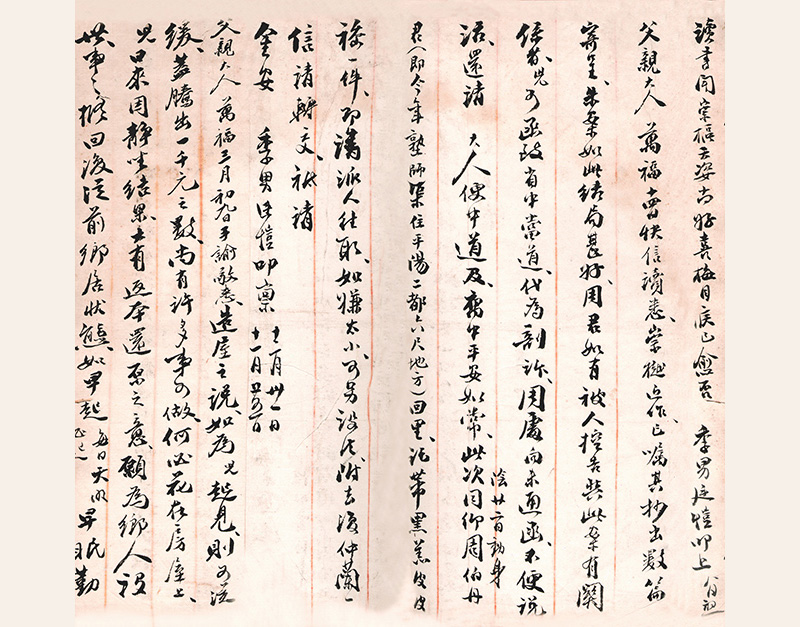 读書聞崇樞天姿尚好喜梅目疾已愈否 季男廷愷叩上 八月初
父親大人 萬福 快信讀悉崇樾点作已嘱其抄出數篇
寄呈朱案如此結局甚好周君如有被人控告與此案有關
係者兒可函致省中當道代為剖訴用處向未通函不便説
話還請 大人便中道及 寓中平安如常此次同仰周伯丹
陰廿二日動身
君(即今年塾師渠住平陽二都六尺地方)回里託帶黑羔皮皮
一件即請派人往取如嫌太小可另設法附去復仲蘭一
信請轉交祇請
金安 季男廷愷叩稟 十二月卅一日
十一月
父親大人 萬福三月初九日手諭敬悉造屋之説如為兒起見則可從
緩蓋騰出一千元之數尚有許多事可做何必花在房屋上
兒日來因静坐結果大有返本還原之意願為鄉人設
世事之擬回復從前鄉居狀態如早起 每日天明 早眠 勤